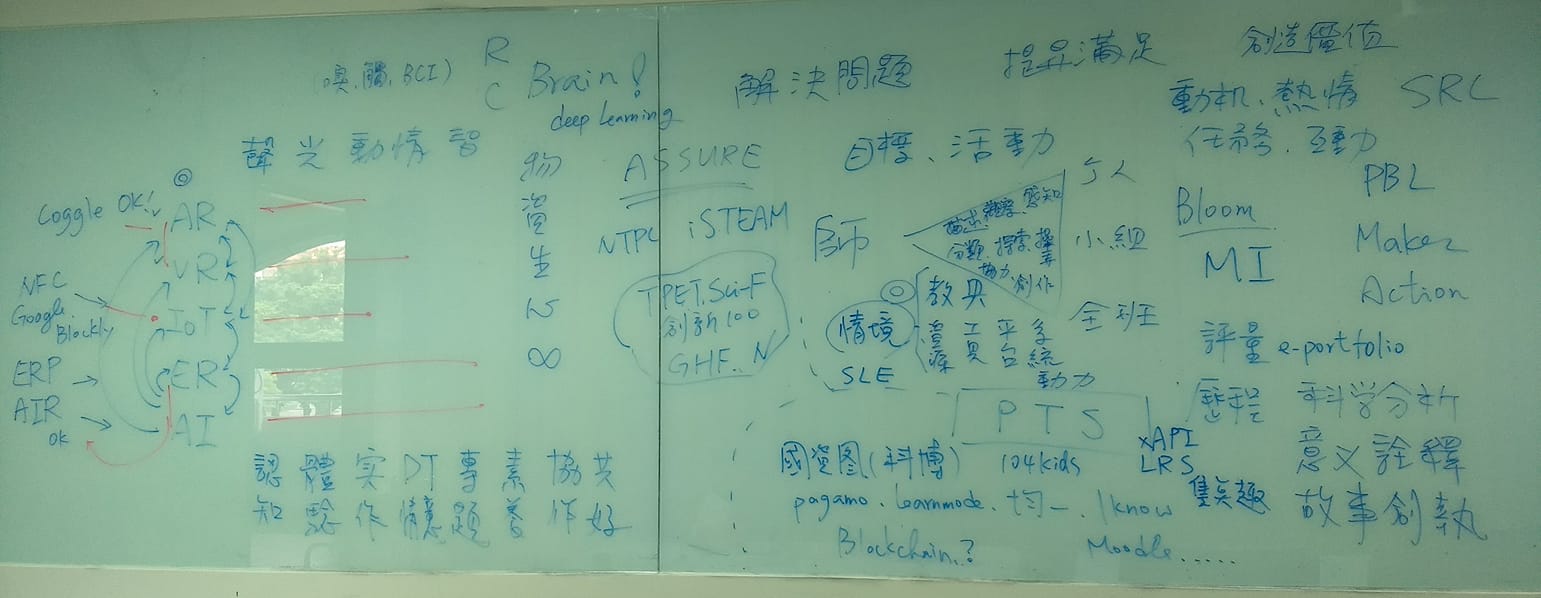 (嗅.觸.BCI)
R
C
Brain!
deep learning
聲光動情智
◎
Coggle OK!
AR
VR
IoT
ER
AI
NFC
Google
Blockly
ERP
AIR
OK
物
資
生
心
∞
認體实DT專素協共
知驗作情意題養作好
解決問題
提昇滿足
創造價值
ASSURE
NTPC
iSTEAM
TPET.Sci-F
創新100
GHF..N
目標、活動
師
描述 觀察 感知
分類.探索.選擇
協力.創作
个人
小組
全班
◎
情境
SLE
教具
資工平系
源具台統
動力
PTS
動机、熱情
任務.互動
SRL
Bloom
MI
PBL
Maker
Action
評量 e-portfolio
歷程
科学分析
意义詮釋
故事創執
國資图(科博)
104kids
xAPI
LRS
集点趣
pagamo.learnmode.均一.1know
Blockchain.?
Moodle.....